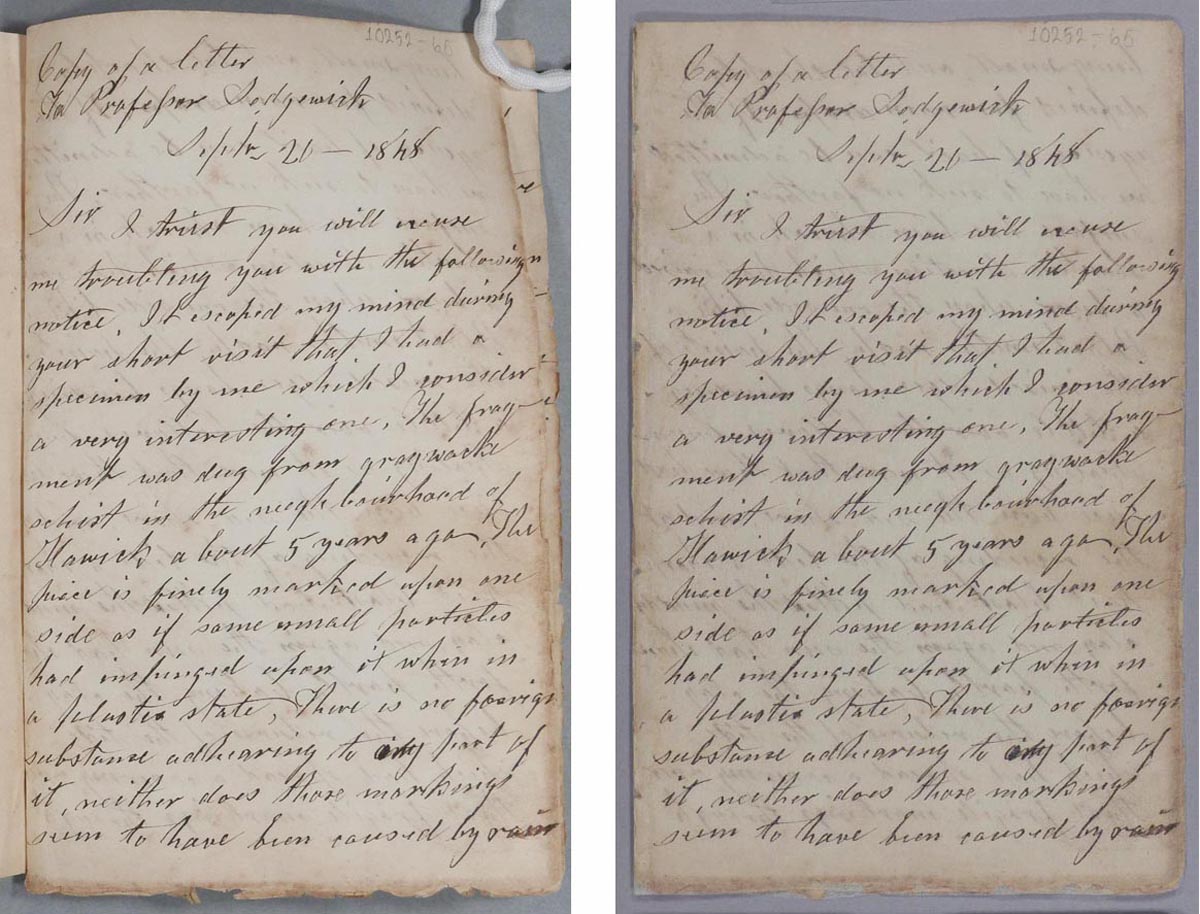 10252-65
Copy of a letter
To Professor Sedgewick
Septr 20 — 1848
Sir I trust you will excuse
me troubling you with the following
notice. It escaped my mind during
your short visit that I had a
specimen by me which I consider
a very interesting one, The frag-
ment was dug from graywacke
schist in the neighbourhood of
Hawick about 5 years ago, The
piece is finely marked upon one
side as if some small particles
had impinged upon it when in
a plastic state, There is no foreign
substance adhearing to any part of
it, neither does those markings
seem to have been caused by rain
10252-65
Copy of a letter
To Professor Sedgewick
Septr 20 — 1848
Sir I trust you will excuse
me troubling you with the following
notice. It escaped my mind during
your short visit that I had a
specimen by me which I consider
a very interesting one, The frag-
ment was dug from graywacke
schist in the neighbourhood of
Hawick about 5 years ago, The
piece is finely marked upon one
side as if some small particles
had impinged upon it when in
a plastic state, There is no foreign
substance adhearing to any part of
it, neither does those markings
seem to have been caused by rain